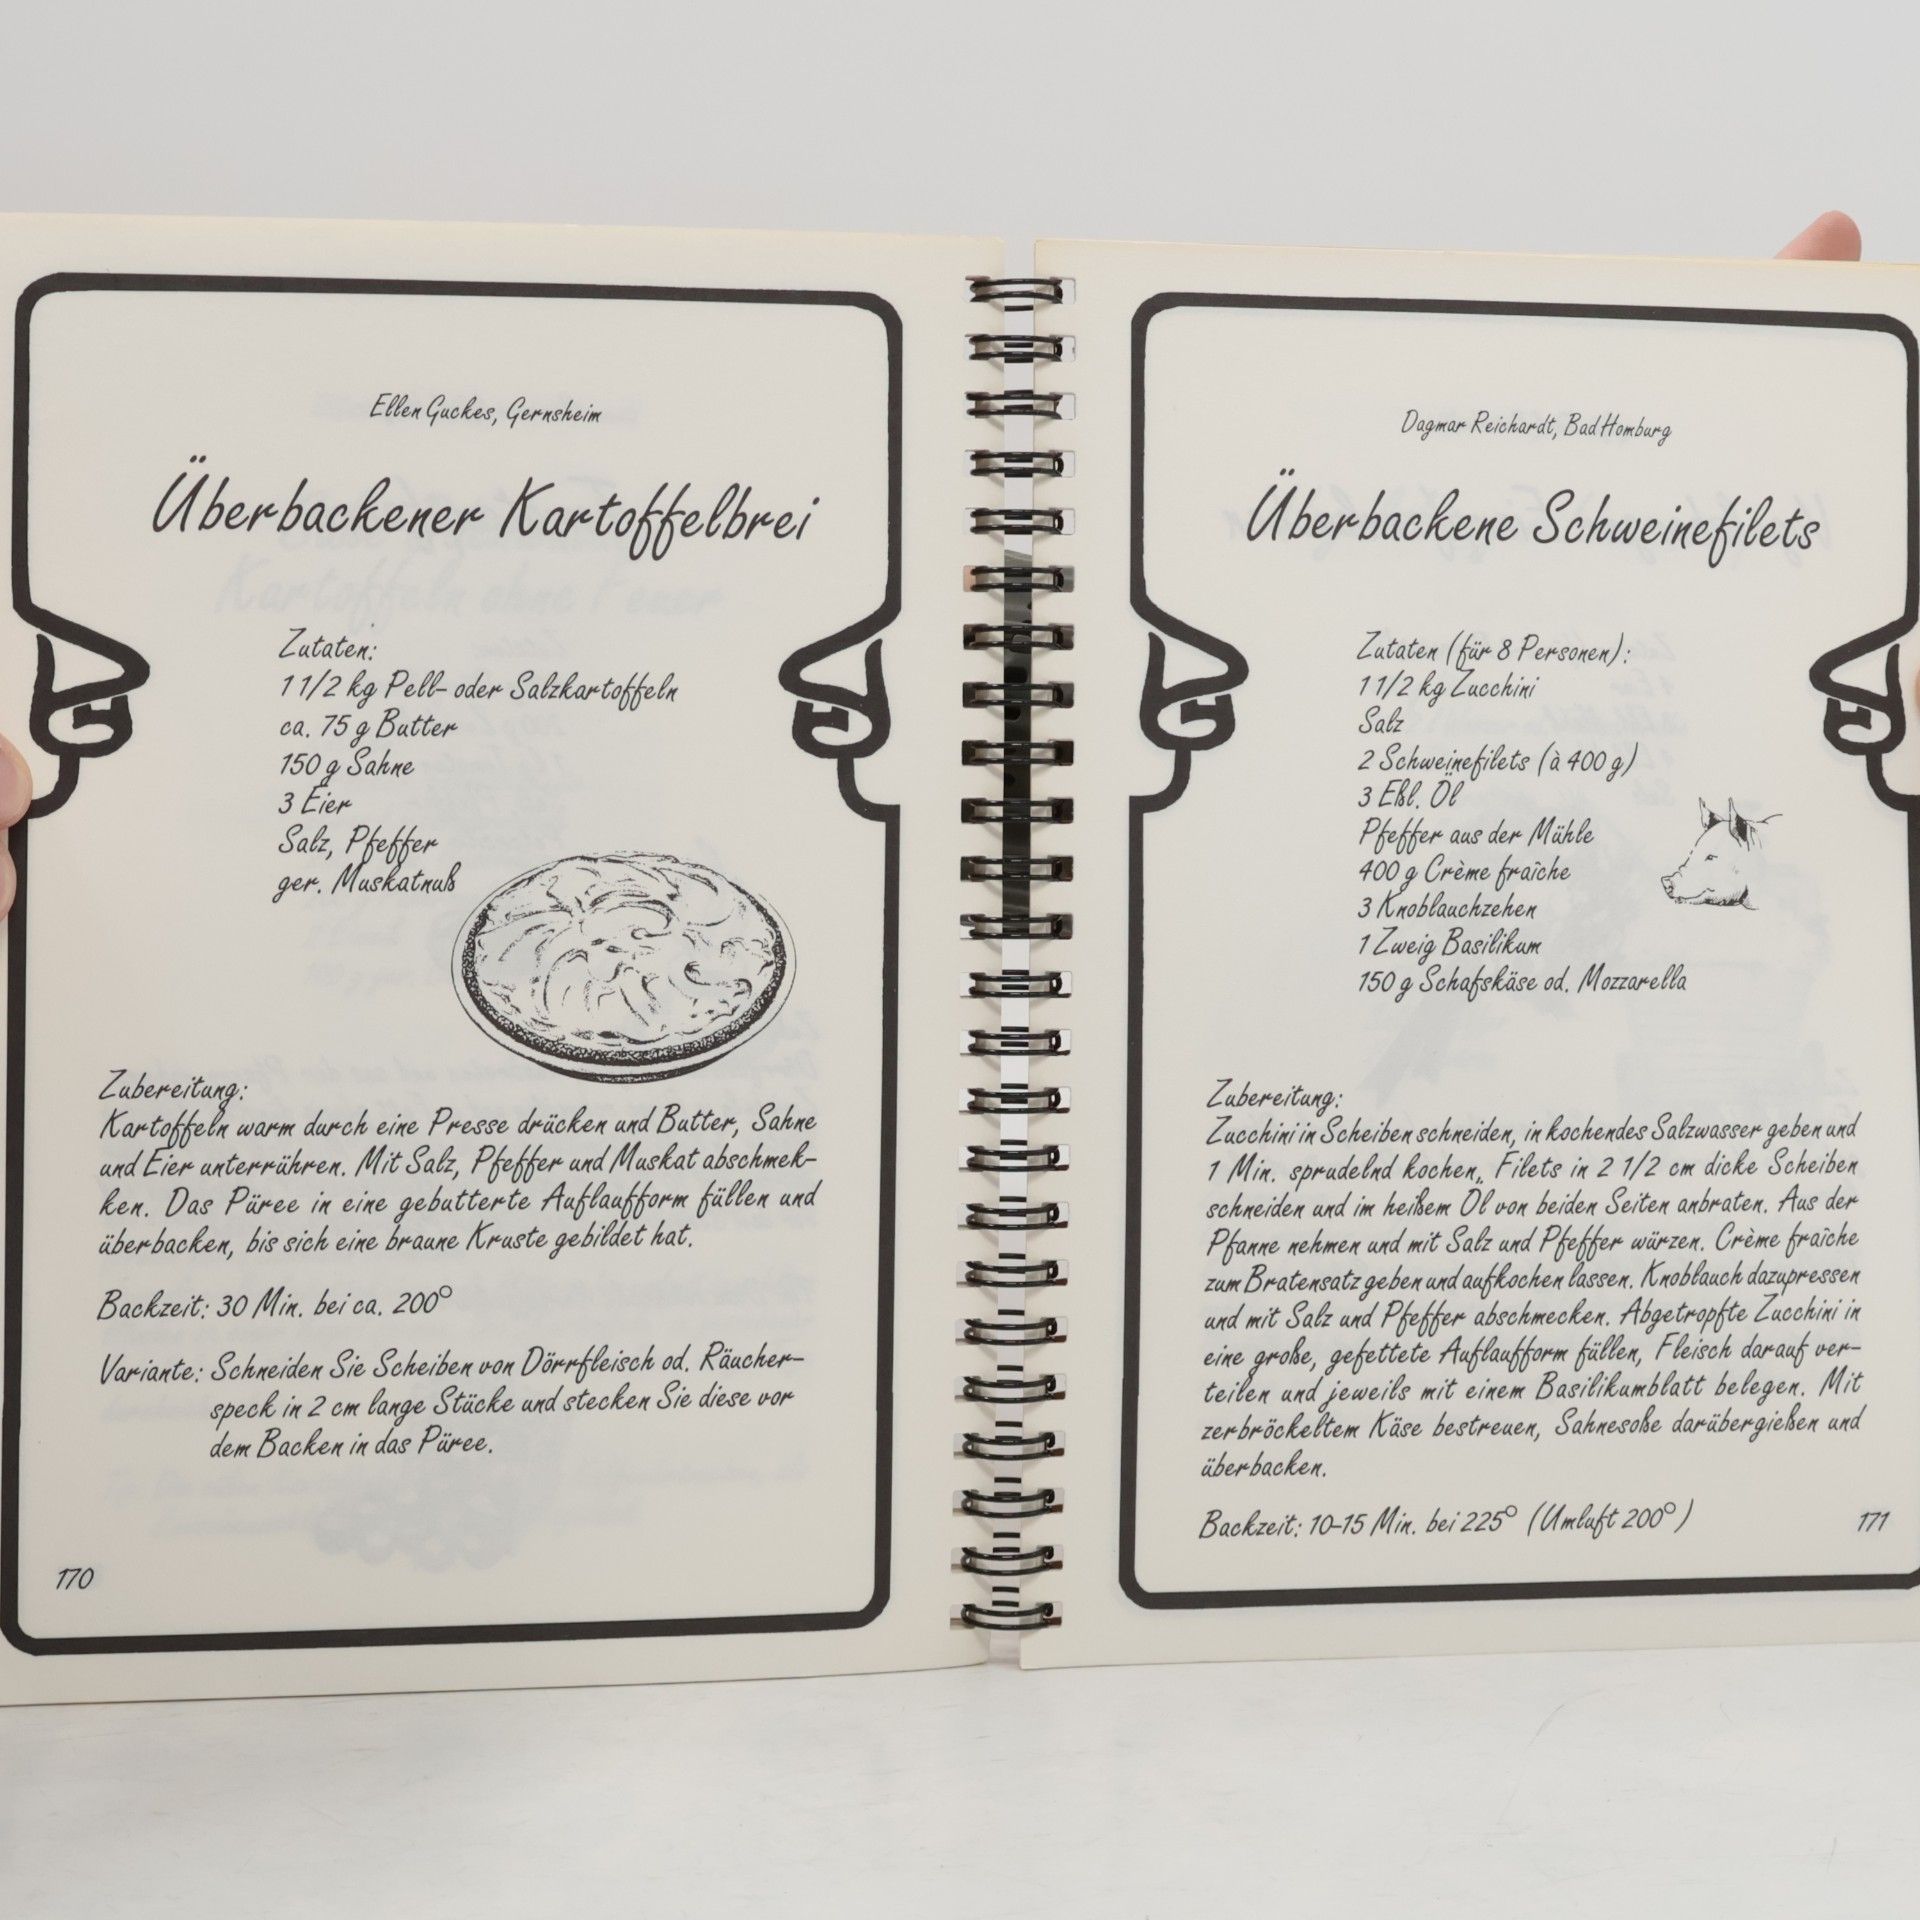 Ellen Guckes, Gernsheim
Überbackener Kartoffelbrei
Zutaten:
1 1/2 kg Pell- oder Salzkartoffeln
ca. 75 g Butter
150 g Sahne
3 Eier
Salz, Pfeffer
ger. Muskatnuß
Zubereitung:
Kartoffeln warm durch eine Presse drücken und Butter, Sahne
und Eier unterrühren. Mit Salz, Pfeffer und Muskat abschmek-
ken. Das Püree in eine gebutterte Auflaufform füllen und
überbacken, bis sich eine braune Kruste gebildet hat.
Backzeit: 30 Min. bei ca. 200°
Variante: Schneiden Sie Scheiben von Dörrfleisch od. Räucher-
speck in 2 cm lange Stücke und stecken Sie diese vor
dem Backen in das Püree.
170
Dagmar Reichardt, Bad Homburg
Überbackene Schweinefilets
Zutaten (für 8 Personen):
1 1/2 kg Zucchini
Salz
2 Schweinefilets (à 400 g)
3 Eßl. Öl
Pfeffer aus der Mühle
400 g Crème fraîche
3 Knoblauchzehen
1 Zweig Basilikum
150 g Schafskäse od. Mozzarella
Zubereitung:
Zucchini in Scheiben schneiden, in kochendes Salzwasser geben und
1 Min. sprudelnd kochen,. Filets in 2 1/2 cm dicke Scheiben
schneiden und im heißem Öl von beiden Seiten anbraten. Aus der
Pfanne nehmen und mit Salz und Pfeffer würzen. Crème fraîche
zum Bratensatz geben und aufkochen lassen. Knoblauch dazupressen
und mit Salz und Pfeffer abschmecken. Abgetropfte Zucchini in
eine große, gefettete Auflaufform füllen, Fleisch darauf ver-
teilen und jeweils mit einem Basilikumblatt belegen. Mit
zerbröckeltem Käse bestreuen, Sahnesoße darübergießen und
überbacken.
Backzeit: 10-15 Min. bei 225° (Umluft 200°)
171